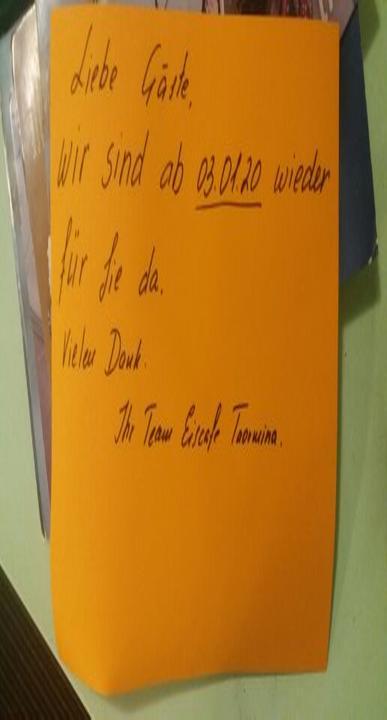 Liebe Gäste,
wir sind ab 03.01.20 wieder
für Sie da.
Vielen Dank.
Ihr Team Eiscafe Taormina.